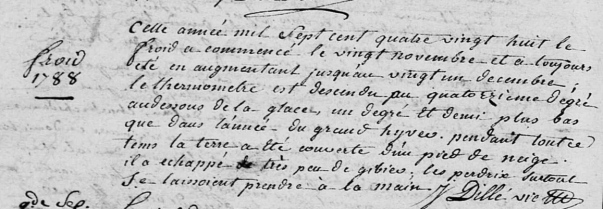 Cette année mil sept cent quatre vingt huit le
froid a commencé le vingt novembre et a toujours
froid
1788
été en augmentant jusqu'au vingt un decembre ;
le thermometre est descendu au quatorzieme degré
audessous de la glace, un degré et demi plus bas
que dans l'année du grand hyver. pendant tout ce
tems la terre a été couverte d'un pied de neige.
il a echappé très peu de gibier, les perdrix surtout
se laissoient prendre à la main J Dillé, vic